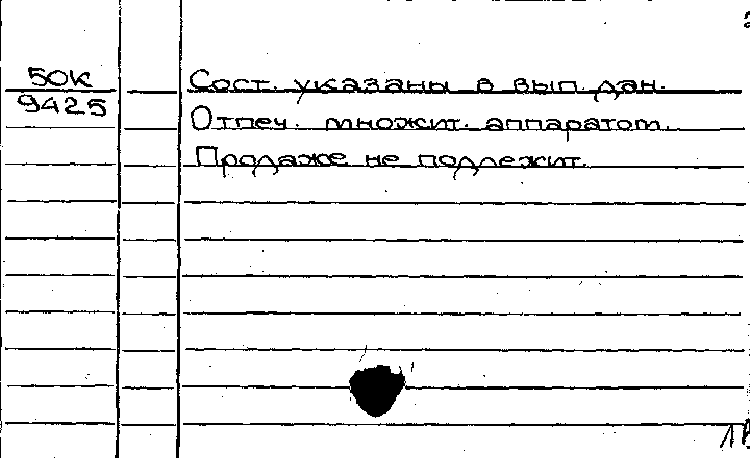 50К Сост. указаны в вып. дан.
9425 Отпеч. множит. аппаратом.
Продаже не подлежит.